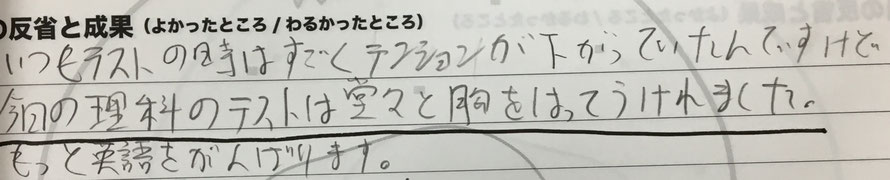 の反省と成果（よかったところ / わるかったところ）
いつもテストの時はすごくテンションが下がっていたんですけど
今回の理科のテストは堂々と胸をはってうけれました。
もっと英語をがんばります。